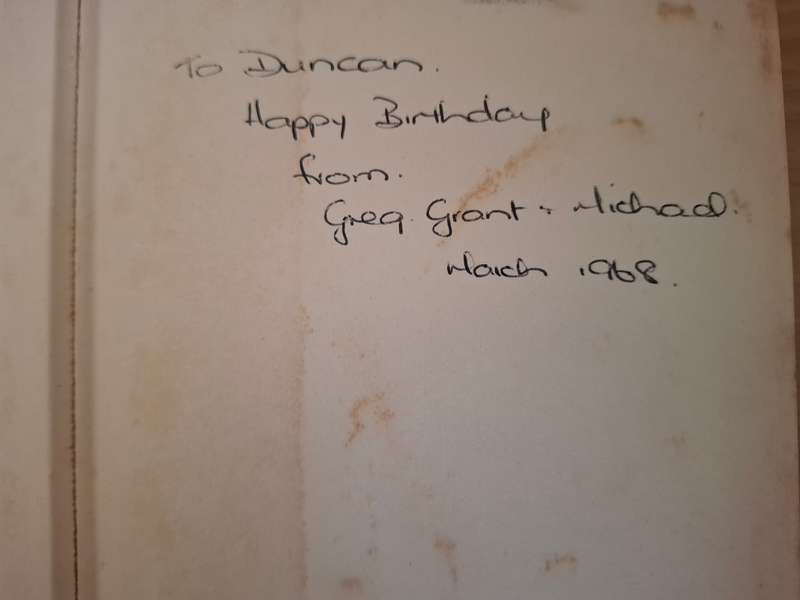 To Duncan.
Happy Birthday
from.
Greg. Grant + Michael.
March 1968.